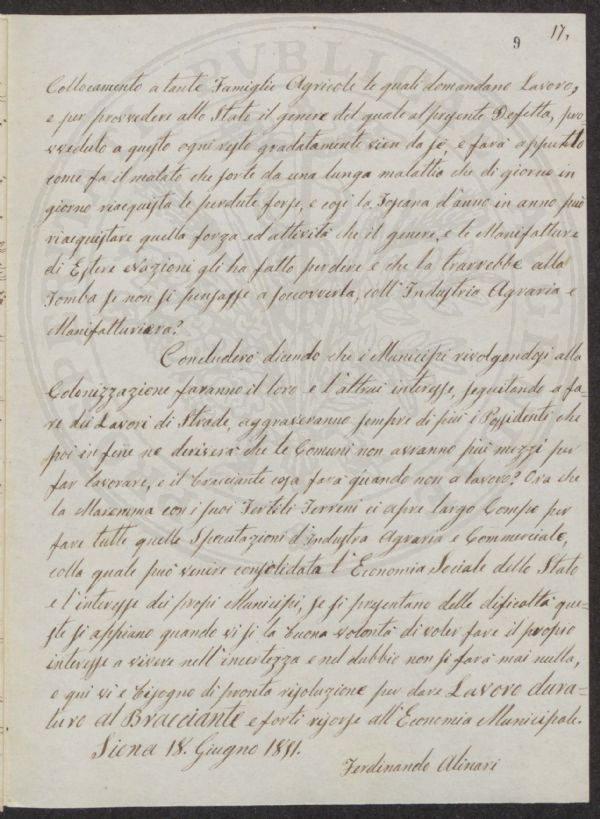 17,
9
Collocamento a tante Famiglie Agricole le quali domandano Lavoro,
e per provvedere allo Stato il genere del quale al presente Difetta, pro-
vveduto a questo ogni resto gradatamente vien da se, e farà appunto
come fa il malato che sorte da una lunga malattia che di giorno in
giorno riacquista le perdute forze, e così la Toscana d'anno in anno può
riacquistare quella forza ed attività che il genere, e le Manifatture
di Estere Nazioni gli ha fatto perdere e che la trarrebbe alla
Tomba se non si pensasse a soccorrerla, coll'Industria Agraria e
Manifatturiera?
Concluderò dicendo che i Municipi rivolgendosi alla
Colonizzazione faranno il loro e l'altrui interesse, seguitando a fa-
re dei Lavori di Strade, aggraveranno sempre di più i Possidenti che
poi in fine ne deriverà che le Comuni non avranno più mezzi per
far lavorare, e il bracciante cosa farà quando non a lavoro? Ora che
la Maremma con i suoi Fertili Terreni ci apre largo Campo per
fare tutte quelle Speculazioni d'Industra Agraria e Commerciale,
colla quale può venire consolidata l'Economia Sociale dello Stato
e l'interesse dei propi Municipi, se si presentano delle dificoltà que-
ste si appiano quando vi si la buona volontà di voler fare il propio
interesse a vivere nell'incertezza e nel dubbio non si farà mai nulla,
e qui vi e bisogno di pronta risoluzione per dare Lavoro dura-
turo al Bracciante e forti risorse all'Economia Municipale.
Siena 18. Giugno 1851.
Ferdinando Alinari